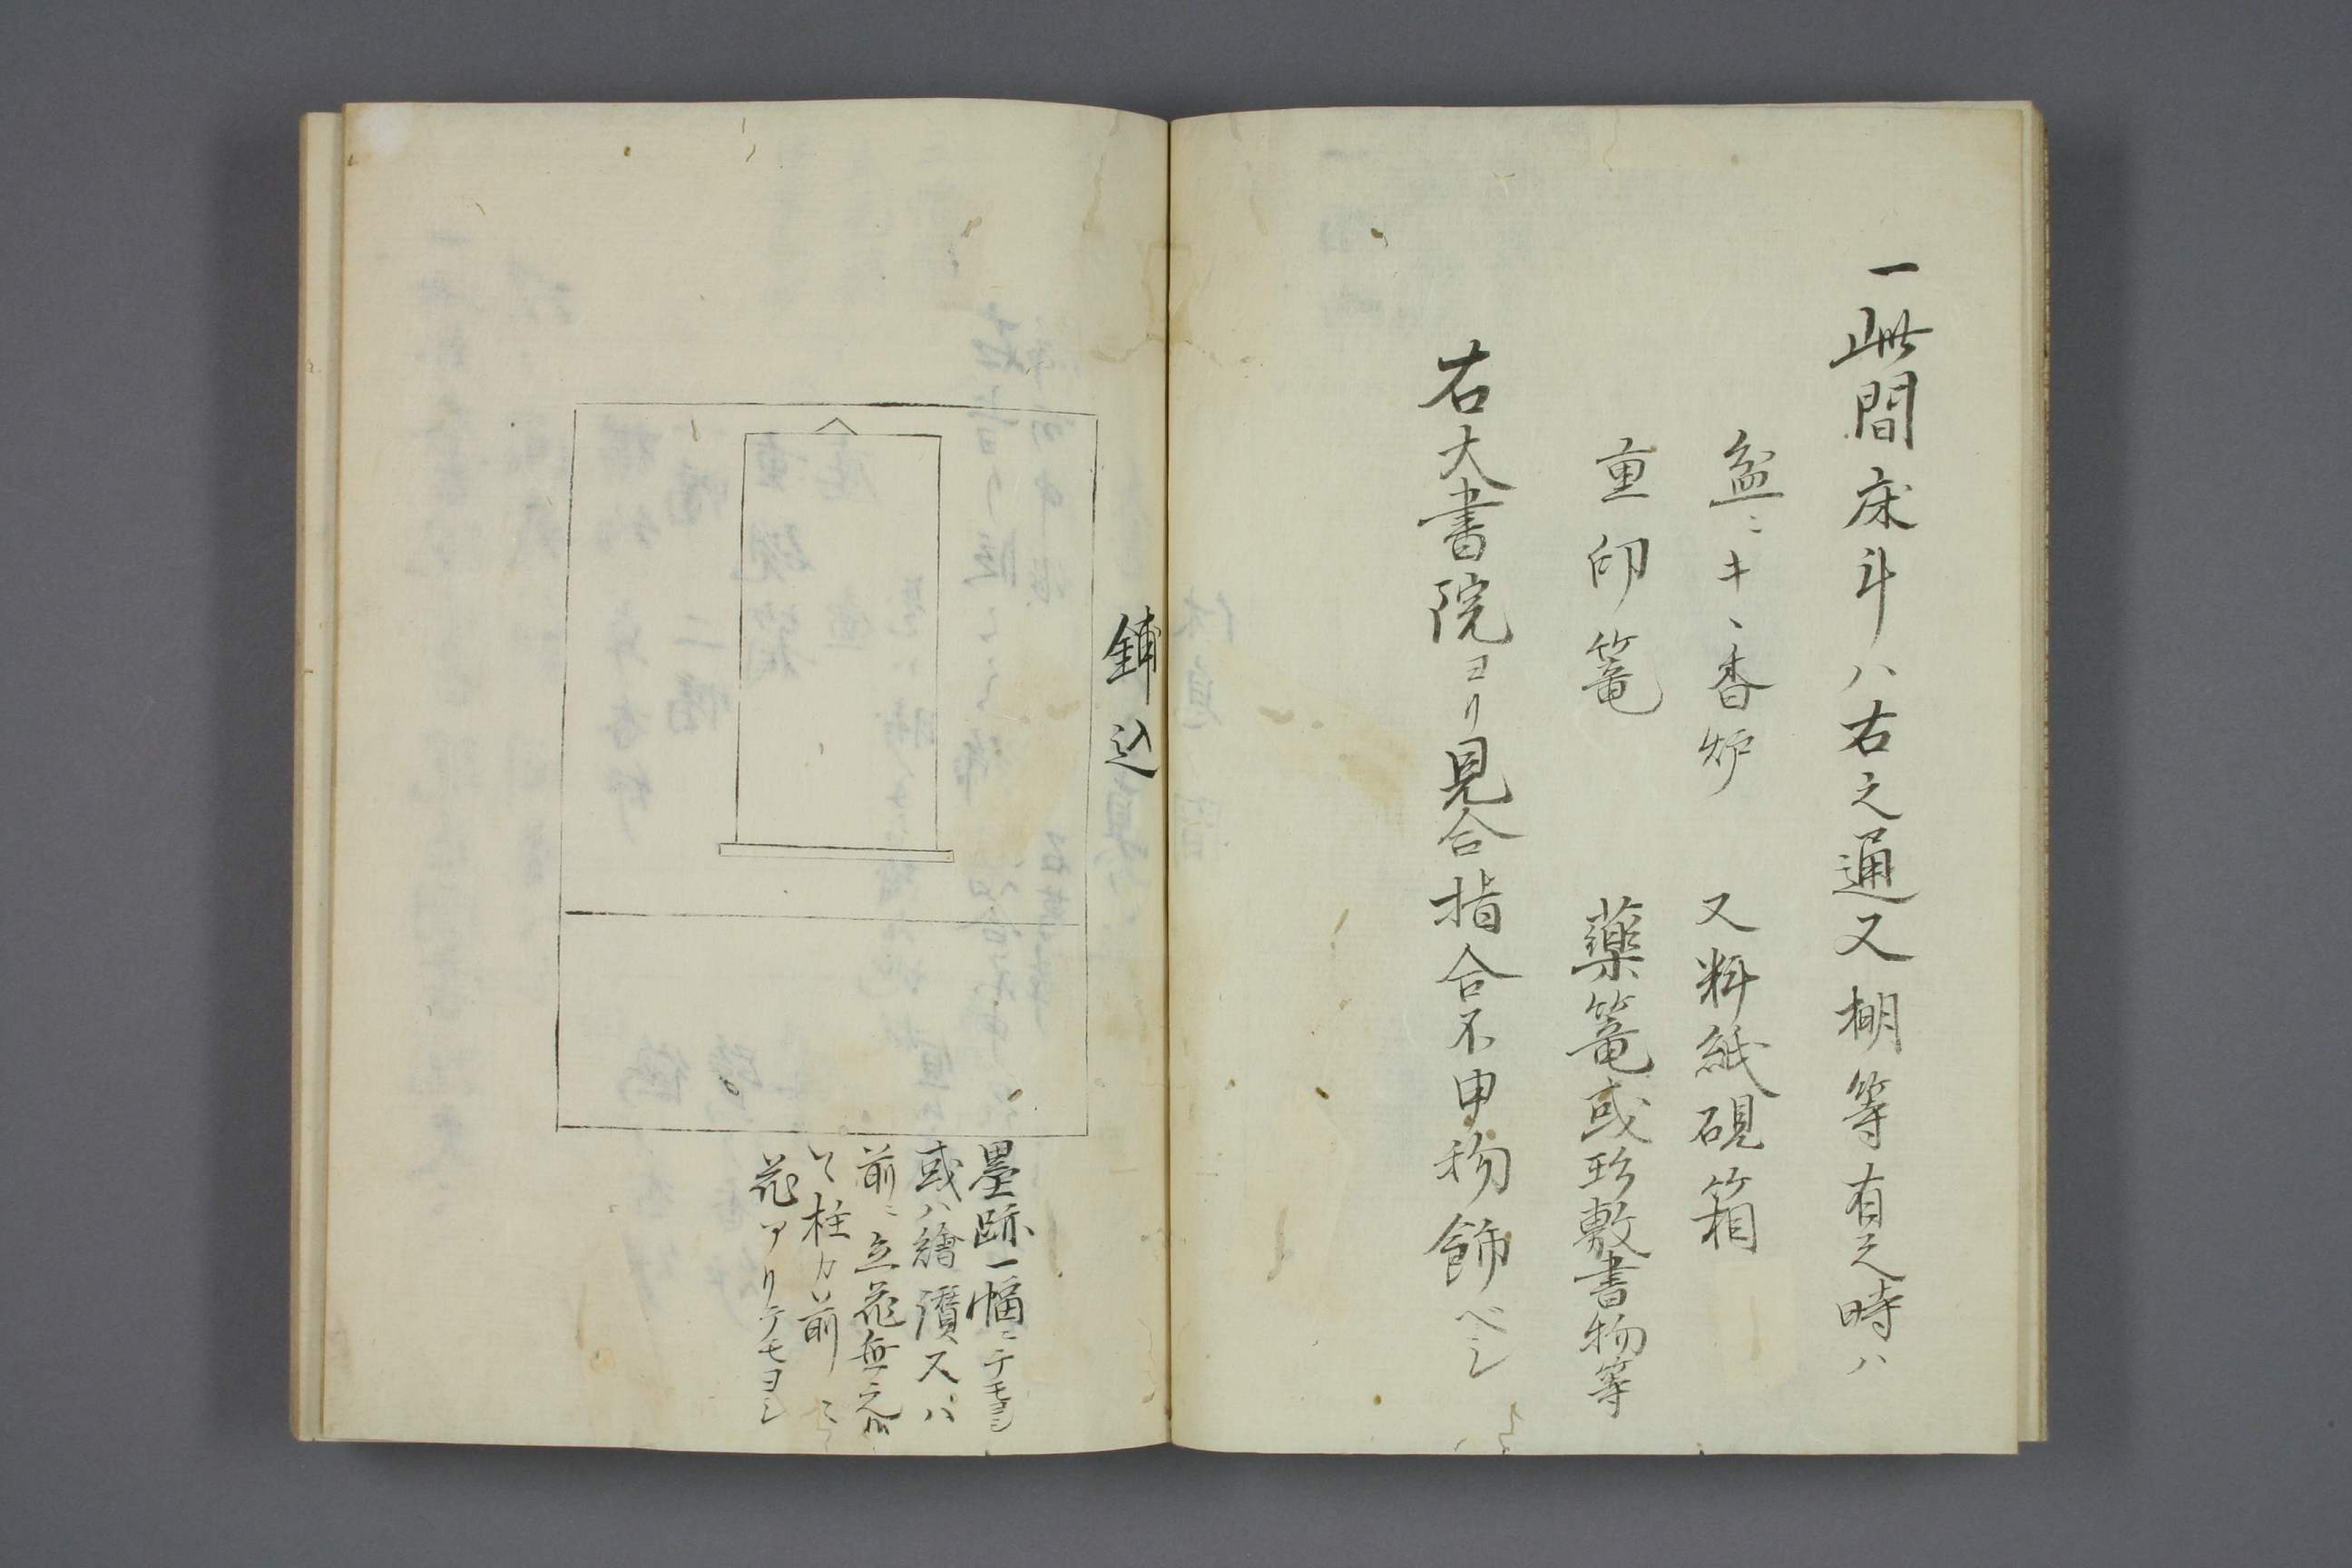 一此間床斗ハ右之通又棚等有之時ハ
盆ニキヽ香炉 又料紙硯箱
重印篭 薬篭或珎敷書物等
右大書院ヨリ見合指合不申物飾ベシ
鋪込
墨跡一幅ニテモヨシ
或ハ繪讃又ハ
前ニ立花無之
柱カ前ニ
花アリテモヨシ